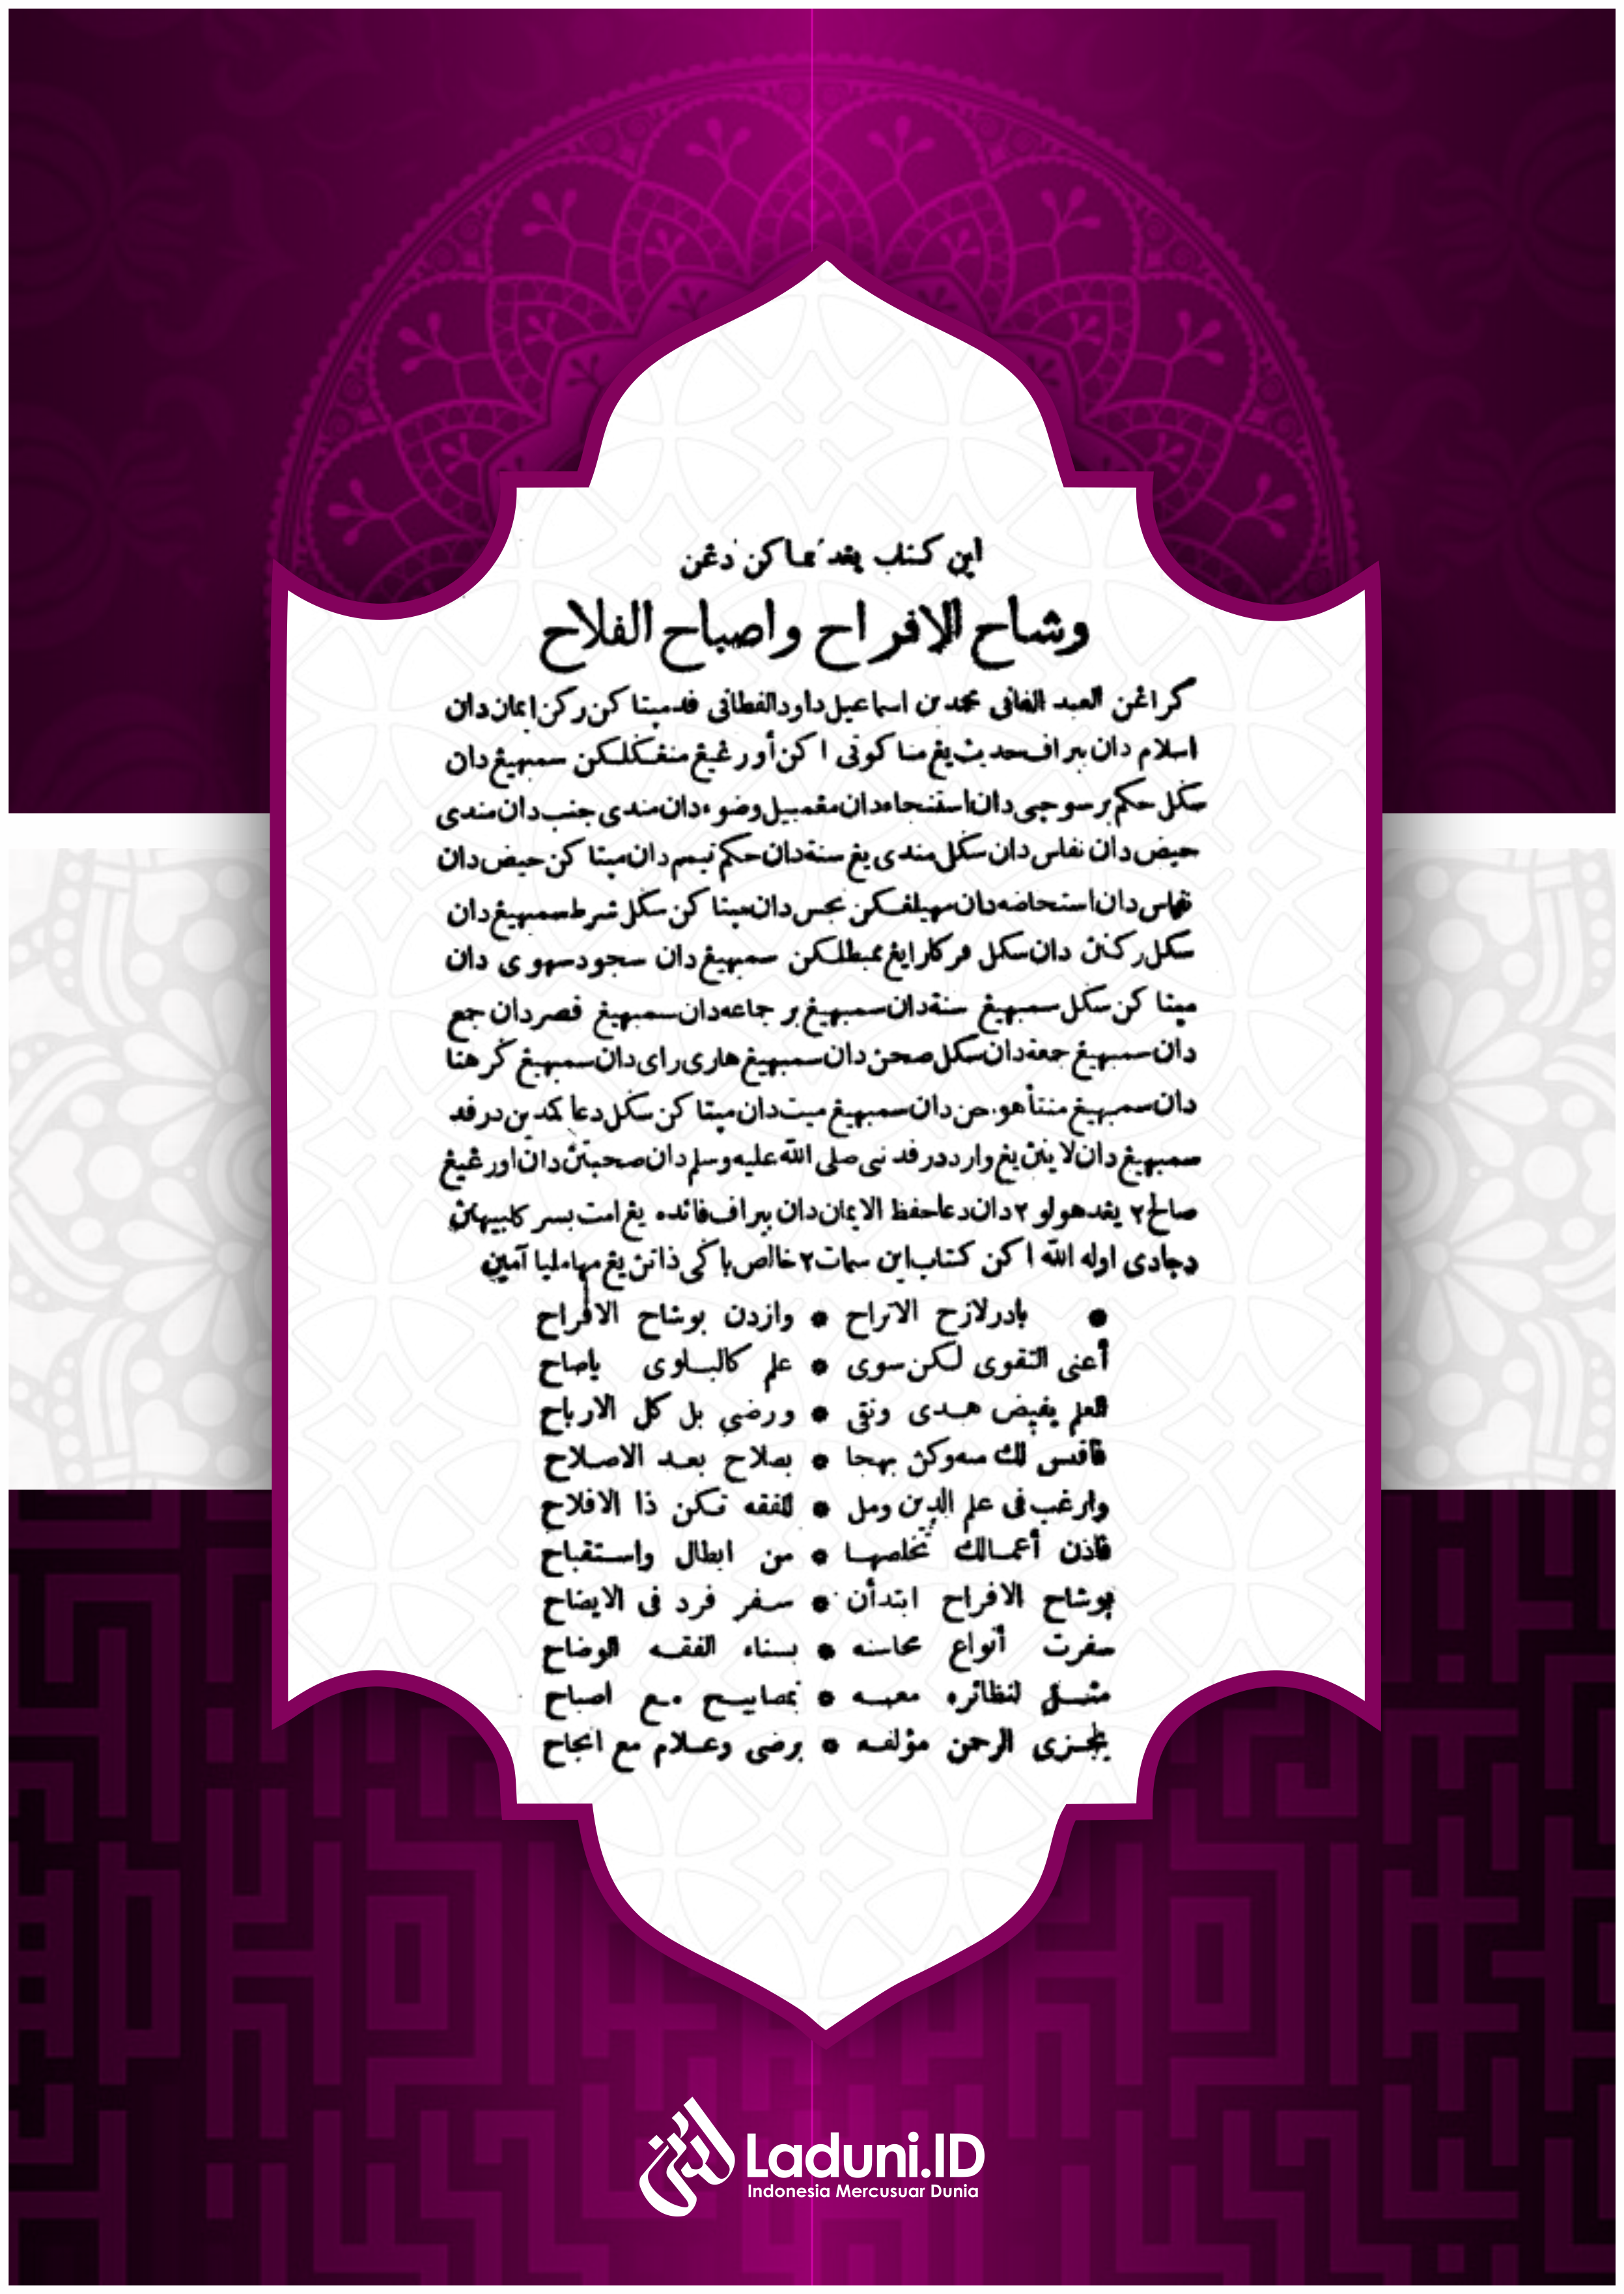 اين كتاب يڠدنماكن دڠن
وشاح الافراح واصباح الفلاح
كراڠن العبد الفانى محمد بن اسماعيل داود الفطانى فد مپتاكن ركن ايمان دان
اسلام دان ببراف حديث يڠ مناكوتى اكن أورڠيڠ منڠڬلكن سمبهيڠ دان
سڬل حكم برسوچى دان استنجاء دان مڠمبيل وضوء دان مندى جنب دان مندى
حيض دان نفاس دان سڬل مندى يڠ سنة دان حكم تيمم دان مپتاكن حيض دان
نفاس دان استحاضه دان مهيلڠكن نجس دان مپتاكن سڬل شرط سمبهيڠ دان
سڬل ركنن دان سڬل فركارايڠ ممبطلكن سمبهيڠ دان سجود سهوى دان
مپتاكن سڬل سمبهيڠ سنة دان سمبهيڠ برجماعه دان سمبهيڠ قصر دان جمع
دان سمبهيڠ جمعة دان سڬل صحن دان سمبهيڠ هارى راى دان سمبهيڠ ڬرهنا
دان سمبهيڠ منتأ هوجن دان سمبهيڠ ميت دان مپتاكن سڬل دعا كمدين درفد
سمبهيڠ دان لاينن يڠ وارد درفد نبى صلى الله عليه وسلم دان صحبتن دان اورڠيڠ
صالح٢ يڠدهولو٢ دان دعا حفظ الايمان دان ببراف فائده يڠ امت بسر كلبيهنن
دجادى اوله الله اكن كتاب اين سمات٢ خالص باڬى ذاتن يڠ مها مليا آمين
• بادر لازح الاتراح • وازدن بوشاح الافراح
أعنى التقوى لكن سوى • علم كالبلوى ياصاح
العلم يفيض هدى وتقى • ورضي بل كل الارباح
فاقبس لك منه وكن بهجا • بصلاح بعد الاصلاح
وارغب فى علم الدين ومل • للفقه تكن ذا الافلاح
فاذن أعمالك تخلصها • من ابطال واستقباح
بوشاح الافراح ابتدأن • سفر فرد فى الايضاح
سفرت أنواع محاسنه • بسناء الفقه الوضاح
مثل لنظائره معه • بمصابيح مع اصباح
يجزى الرحمن مؤلفه • برضى وعلام مع انجاح
Laduni.ID
Indonesia Mercusuar Dunia